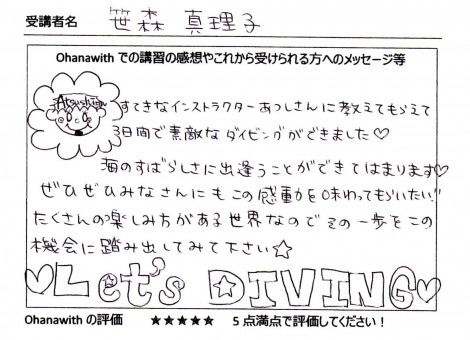 受講者名 笹森 真理子
Ohanawith での講習の感想やこれから受けられる方へのメッセージ等
Atsushi
すてきなインストラクターあつしさんに教えてもらえて
3日間で素敵なダイビングができました♡
海のすばらしさに出逢うことができてはまります♡
ぜひぜひみなさんにもこの感動を味わってもらいたい!!
たくさんの楽しみ方がある世界なのでその一歩をこの
機会に踏み出してみて下さい☆
♡Let's DIVING♡
Ohanawith の評価 ★★★★★ 5点満点で評価してください！